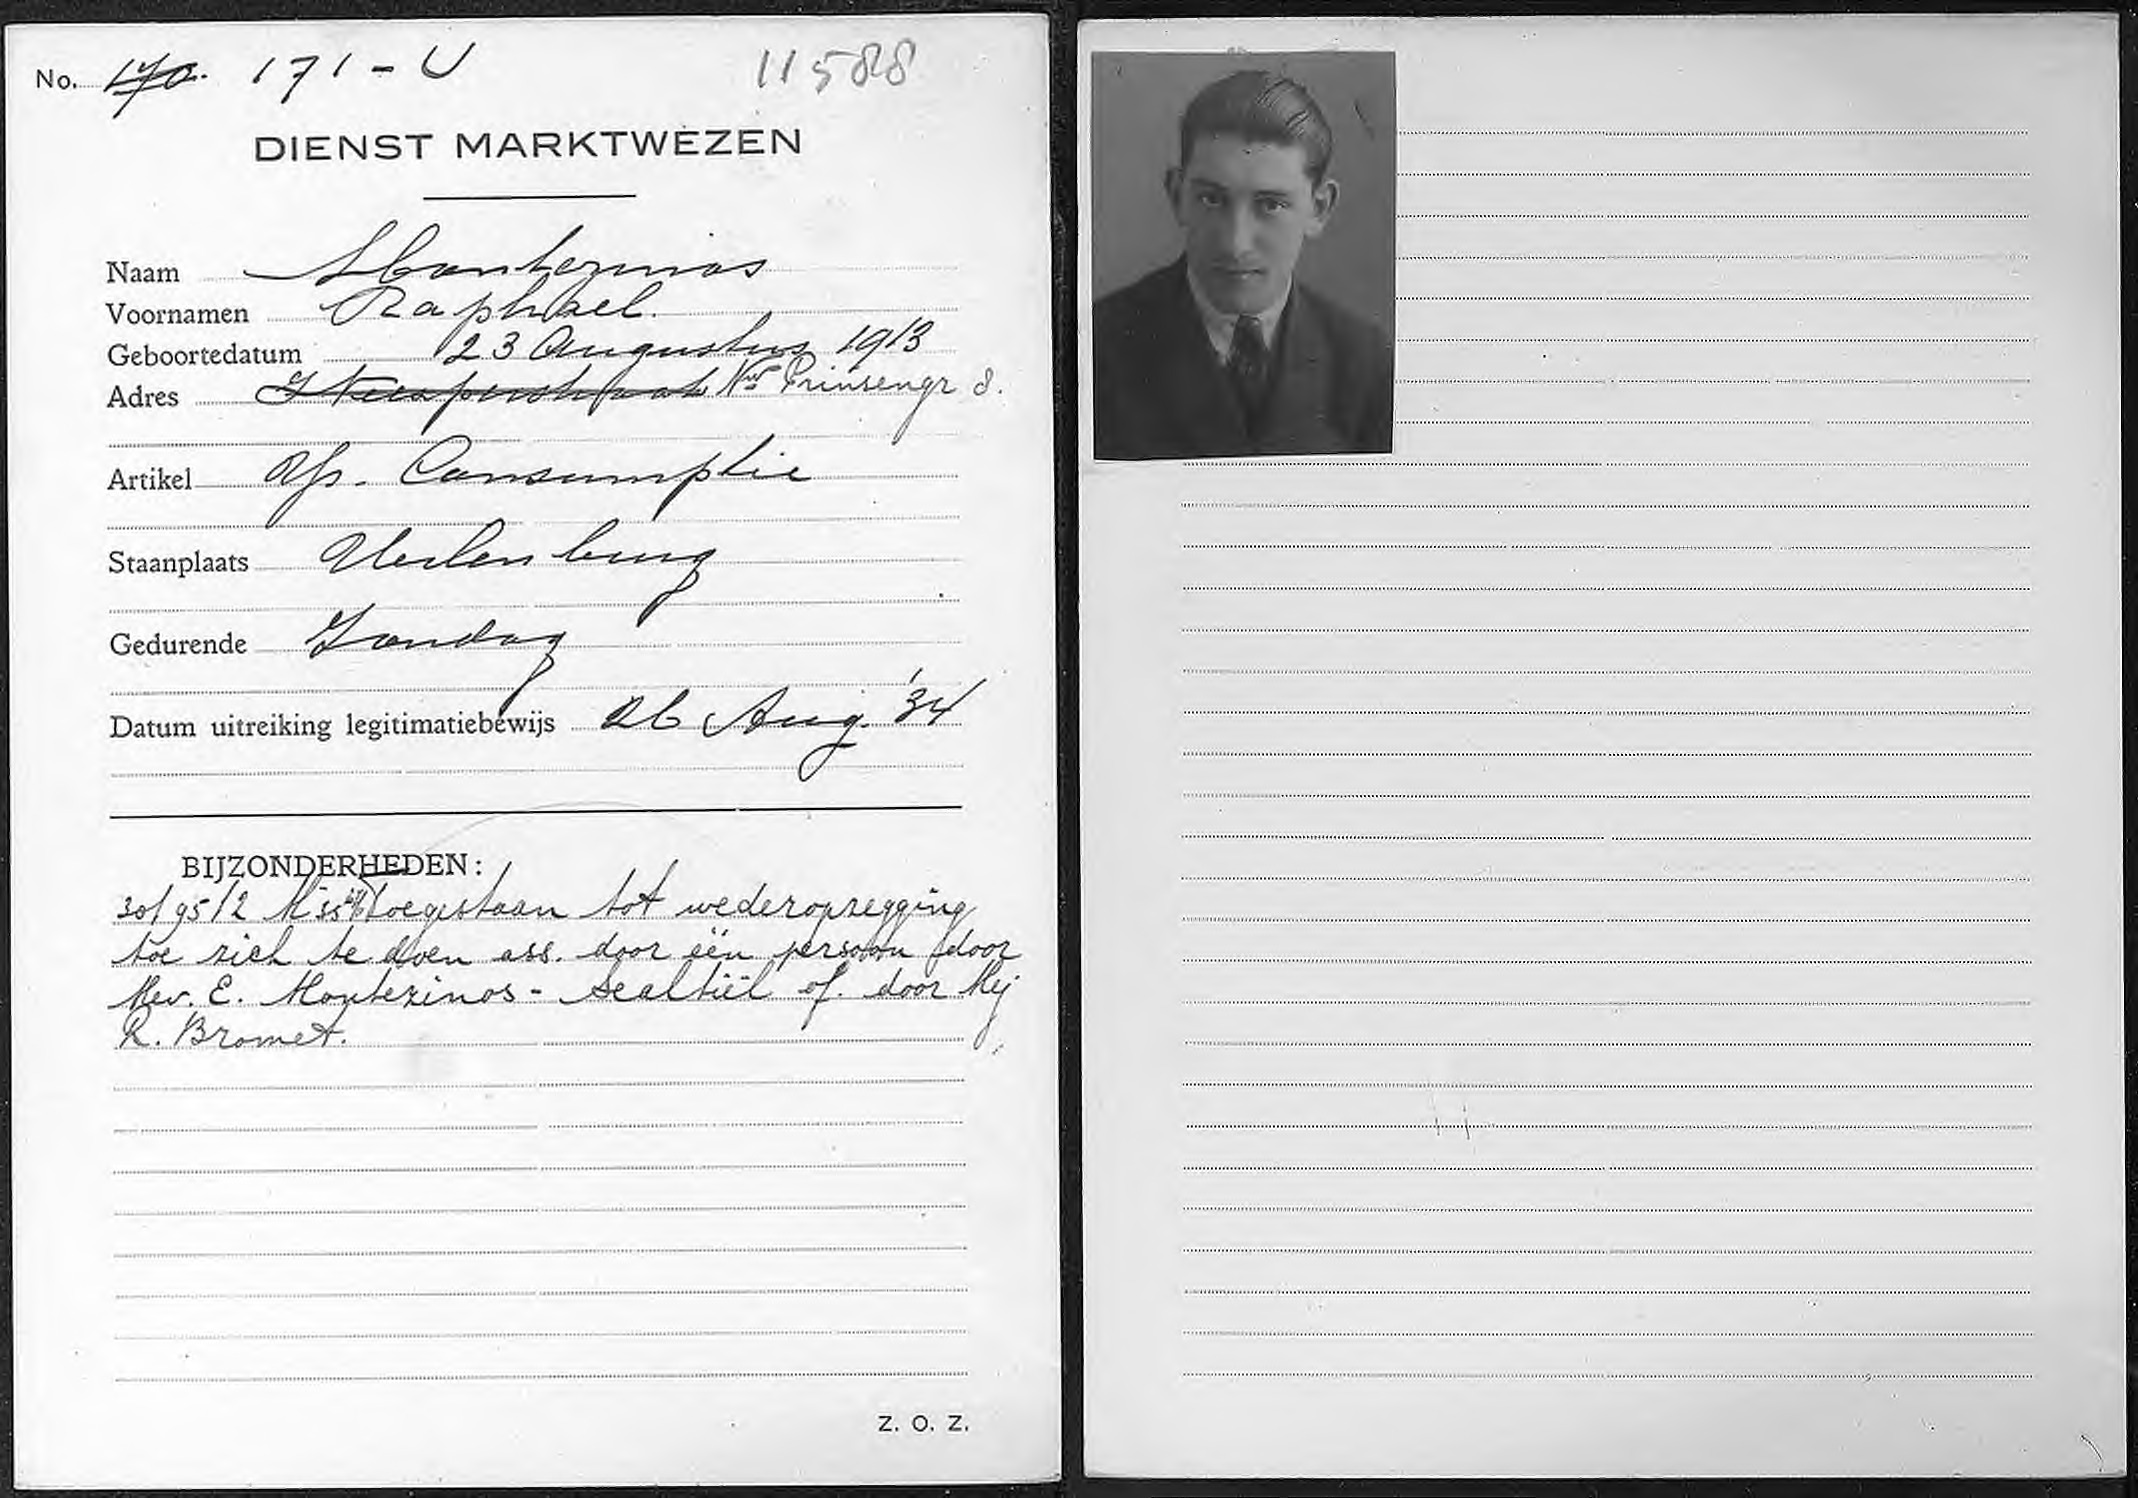 No. 170. 171 - U 11588
DIENST MARKTWEZEN
Naam Montezinos
Voornamen Raphael.
Geboortedatum 23 Augustus 1913
Adres Nwe Prinsengr 8.
Artikel Consumptie
Staanplaats Uilenburg
Gedurende Zondag
Datum uitreiking legitimatiebewijs 26 Aug. '34
BIJZONDERHEDEN:
30/95/2 toegestaan tot wederopzegging
toe zich te doen ass. door één persoon door
Mev. E. Montezinos - Sealtiël of. door Mej
R. Bromet.
Z. O. Z.